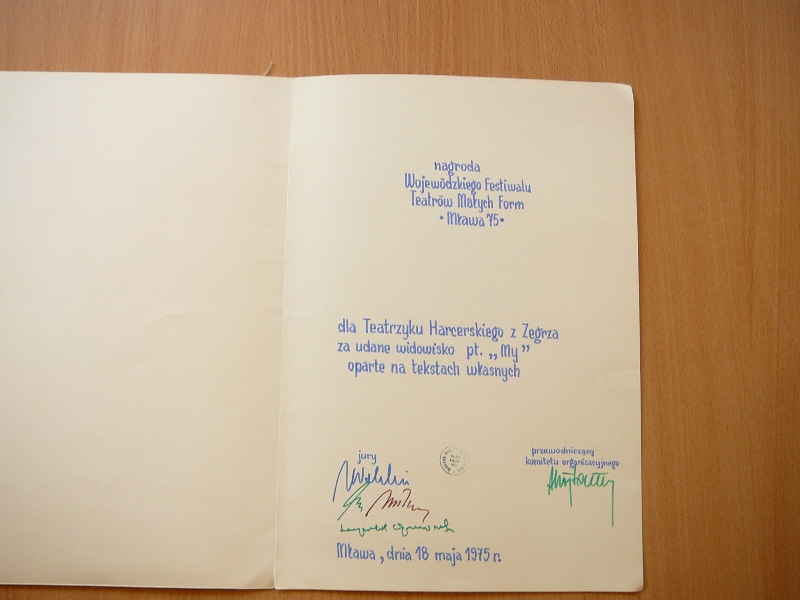 nagroda
Wojewódzkiego Festiwalu
Teatrów Małych Form
• Mława 75 •
dla Teatrzyku Harcerskiego z Zegrza
za udane widowisko pt. „My”
oparte na tekstach własnych
jury
przewodniczący
komitetu organizacyjnego
Mława, dnia 18 maja 1975 r.